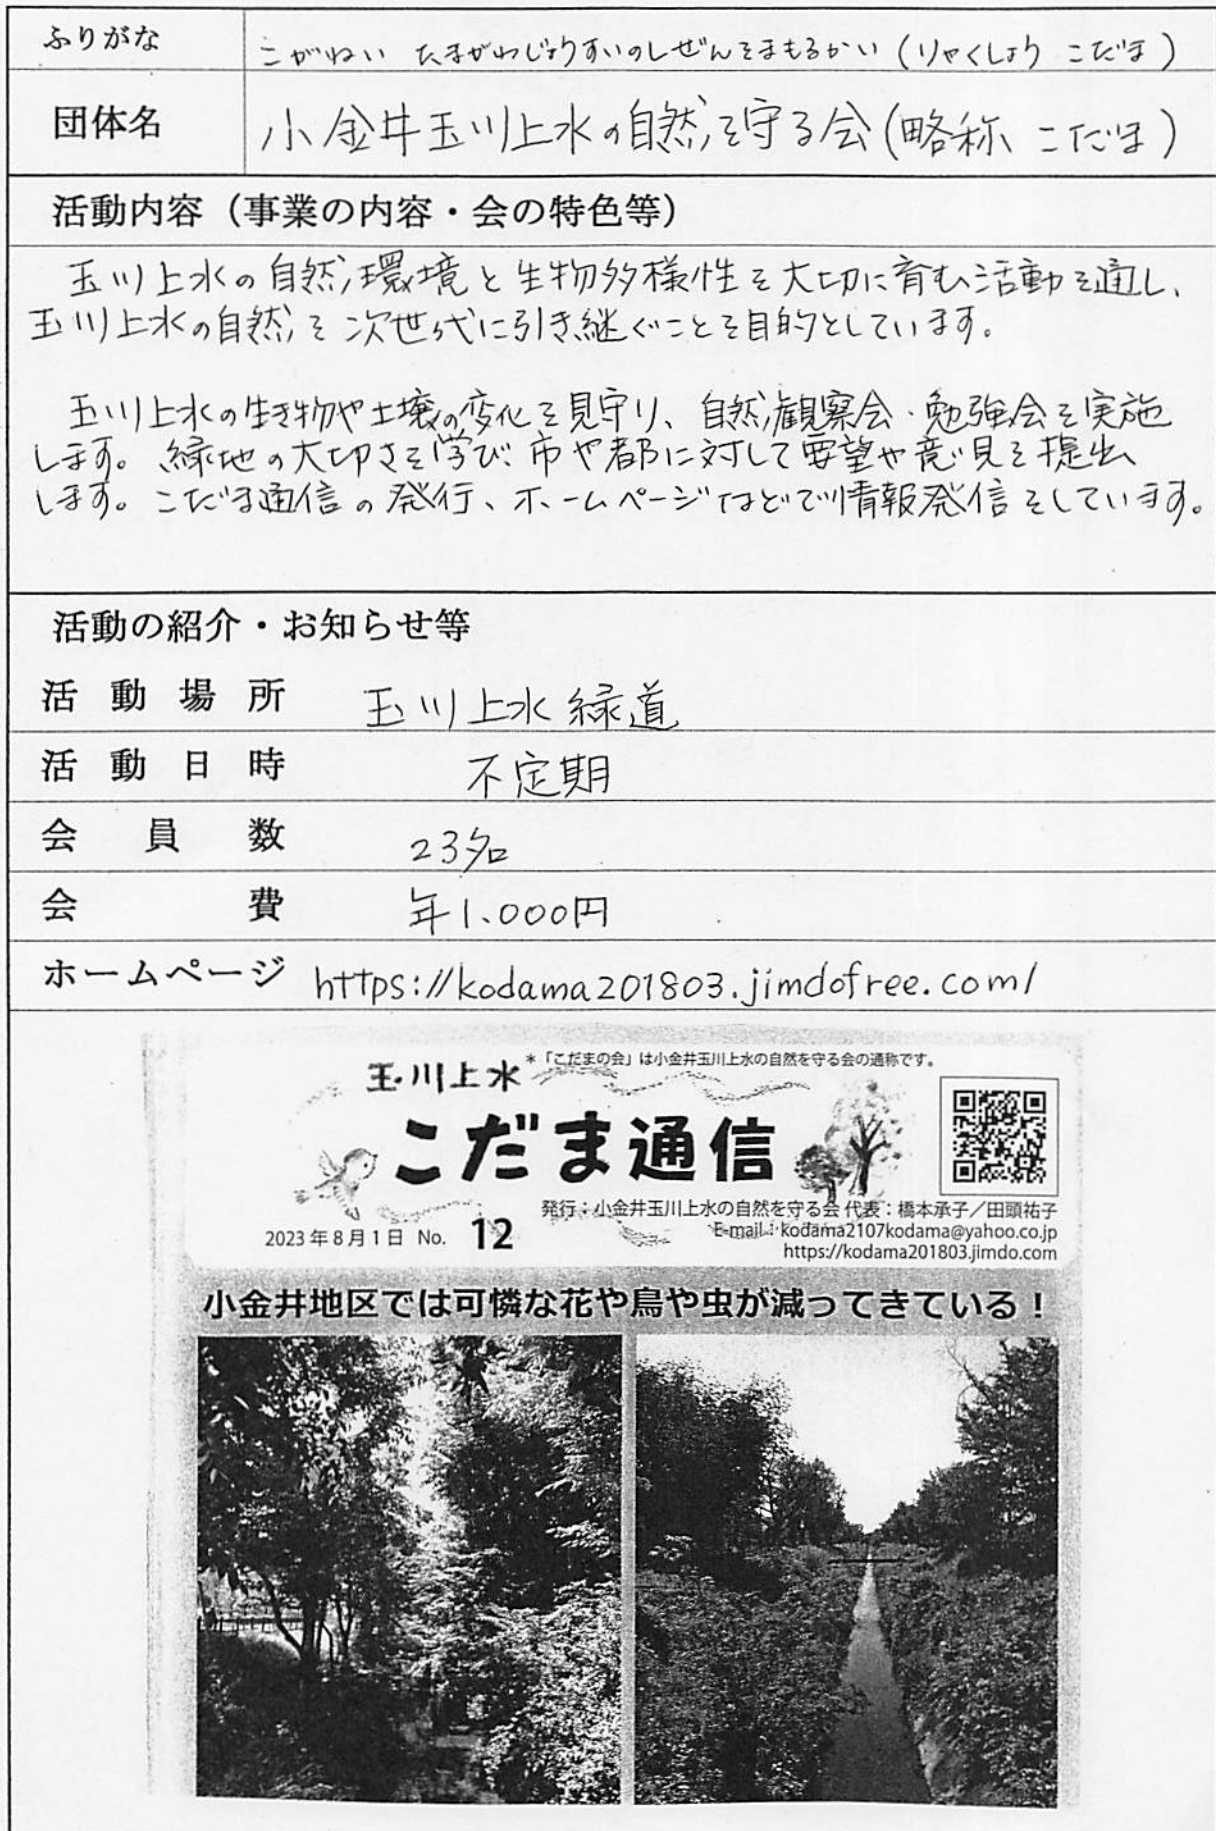 ふりがな こがねい たまがわじょうすいのしぜんをまもるかい（りゃくしょう こだま）
団体名 小金井玉川上水の自然を守る会(略称 こだま)
活動内容（事業の内容・会の特色等）
玉川上水の自然環境と生物多様性を大切に育む活動を通し、
玉川上水の自然を次世代に引き継ぐことを目的としています。
玉川上水の生き物や土壌の変化を見守り、自然観察会・勉強会を実施
します。緑地の大切さを学び、市や都に対して要望や意見を提出
します。こだま通信の発行、ホームページなどで情報発信をしています。
活動の紹介・お知らせ等
活動場所 玉川上水緑道
活動日時 不定期
会員数 23名
会費 年1.000円
ホームページ https://kodama201803.jimdofree.com/
＊「こだまの会」は小金井玉川上水の自然を守る会の通称です。
玉川上水
こだま通信
発行：小金井玉川上水の自然を守る会 代表：橋本承子／田頭祐子
2023年8月1日 No. 12
E-mail：kodama2107kodama@yahoo.co.jp
https://kodama201803.jimdo.com
小金井地区では可憐な花や鳥や虫が減ってきている！